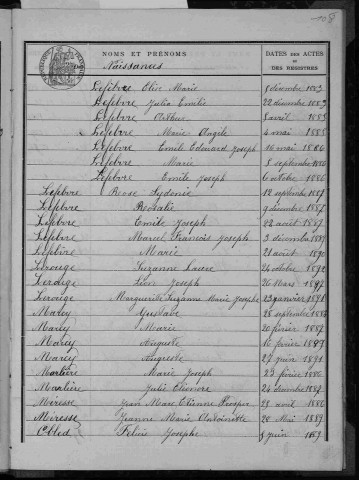 108
NOMS ET PRÉNOMS
DATES DES ACTES
ET DES REGISTRES
Naissances
Lefebvre Elise Marie 1 décembre 1883
Lefebvre Julia Emilie 22 décembre 1883
Lefebvre Arthur 5 avril 1885
Lefebvre Marie Angèle 4 mai 1885
Lefebvre Emile Edouard Joseph 16 mai 1886
Lefebvre Marie 5 septembre 1886
Lefebvre Emile Joseph 6 octobre 1886
Lefebvre Rose Sydonie 12 septembre 1887
Lefebvre Rosalie 9 décembre 1887
Lefebvre Emile Joseph 22 août 1889
Lefebvre Marcel François Joseph 3 décembre 1889
Lefebvre Marie 21 août 1890
Leroige Suzanne 24 octobre 1892
Leroige Léon Joseph 26 Mars 1897
Leroige Marguerite Suzanne Marie Josephe 23 janvier 1898
Marcy Gustave 28 septembre
Marcy Marie 20 février 1887
Marcy Auguste 10 février 1889
Marcy Auguste 27 juin 1891
Marlière Marie Joseph 23 février 1886
Marlière Julie Elienore 24 décembre 1887
Miresse Jean Marc Etienne Prosper 28 août 1886
Miresse Jeanne Marie Antoinette 20 Mai 1889
Obled Félicie Josephe 8 juin 1889